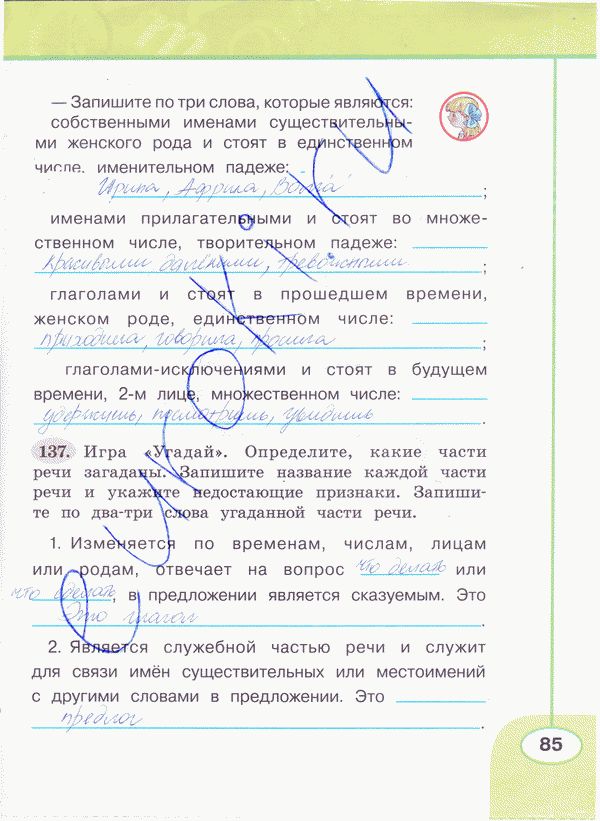 — Запишите по три слова, которые являются:
собственными именами существительны-
ми женского рода и стоят в единственном
числе, именительном падеже:
Ирина, Африка, Волга ;
именами прилагательными и стоят во множе-
ственном числе, творительном падеже:
красивыми далёкими, тревожными ;
глаголами и стоят в прошедшем времени,
женском роде, единственном числе:
приходила, говорила, просила ;
глаголами-исключениями и стоят в будущем
времени, 2-м лице, множественном числе:
удержишь, посмотришь, увидишь .
137. Игра «Угадай». Определите, какие части
речи загаданы. Запишите название каждой части
речи и укажите недостающие признаки. Запиши-
те по два-три слова угаданной части речи.
1. Изменяется по временам, числам, лицам
или родам, отвечает на вопрос что делать или
что сделать, в предложении является сказуемым. Это
Это глагол .
2. Является служебной частью речи и служит
для связи имён существительных или местоимений
с другими словами в предложении. Это
предлог .
85